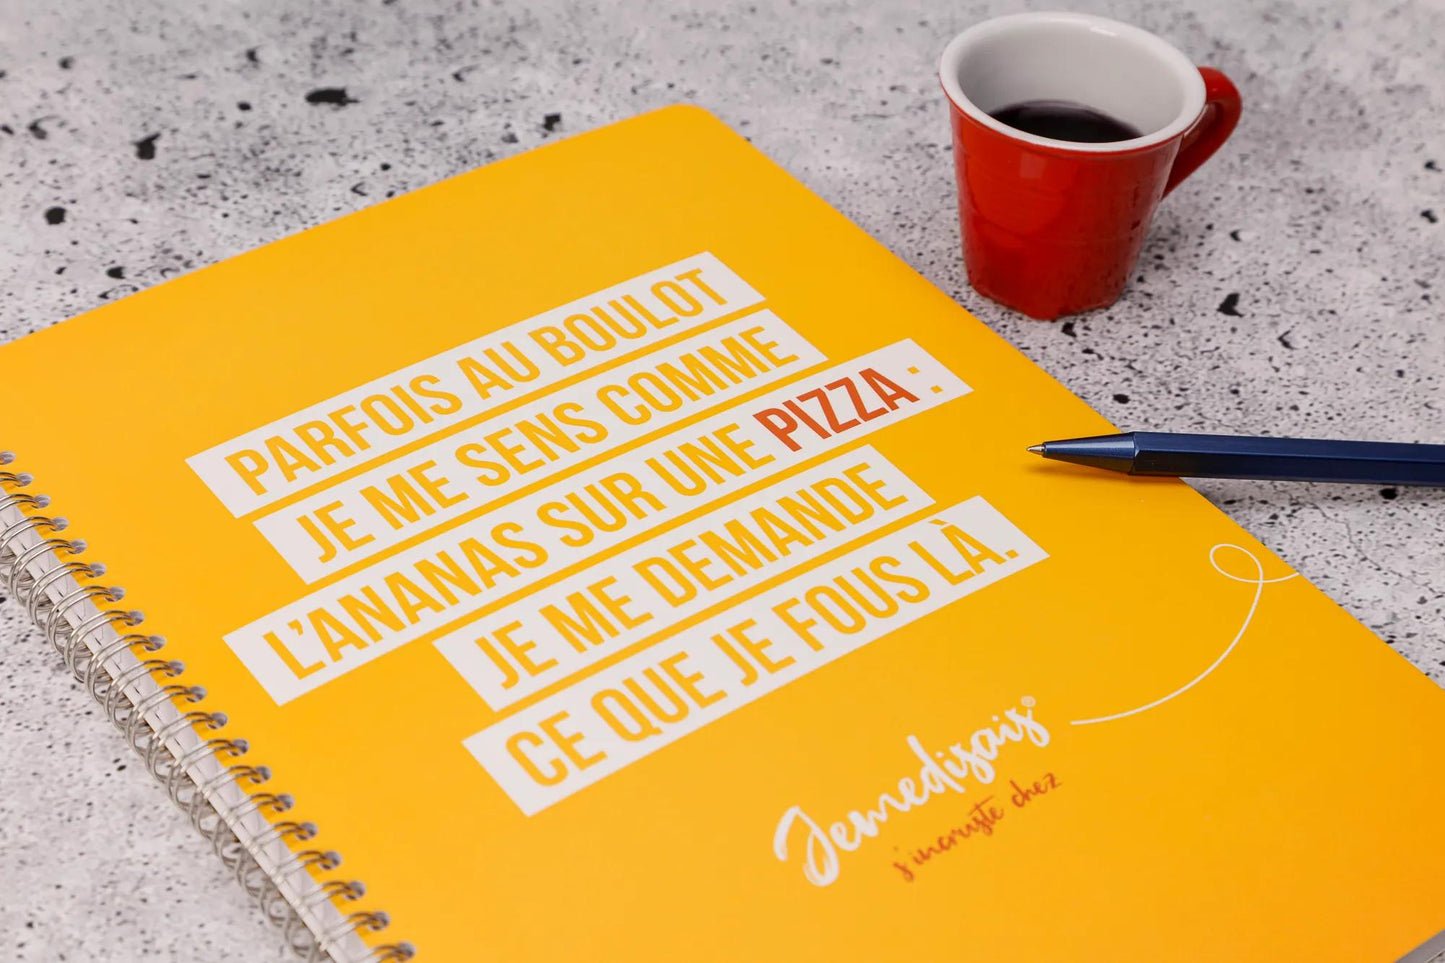 PARFOIS AU BOULOT
JE ME SENS COMME
L'ANANAS SUR UNE PIZZA :
JE ME DEMANDE
CE QUE JE FOUS LÀ.
Jemedisais®
s'incruste chez